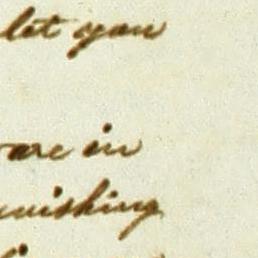 let you
are in
wishing